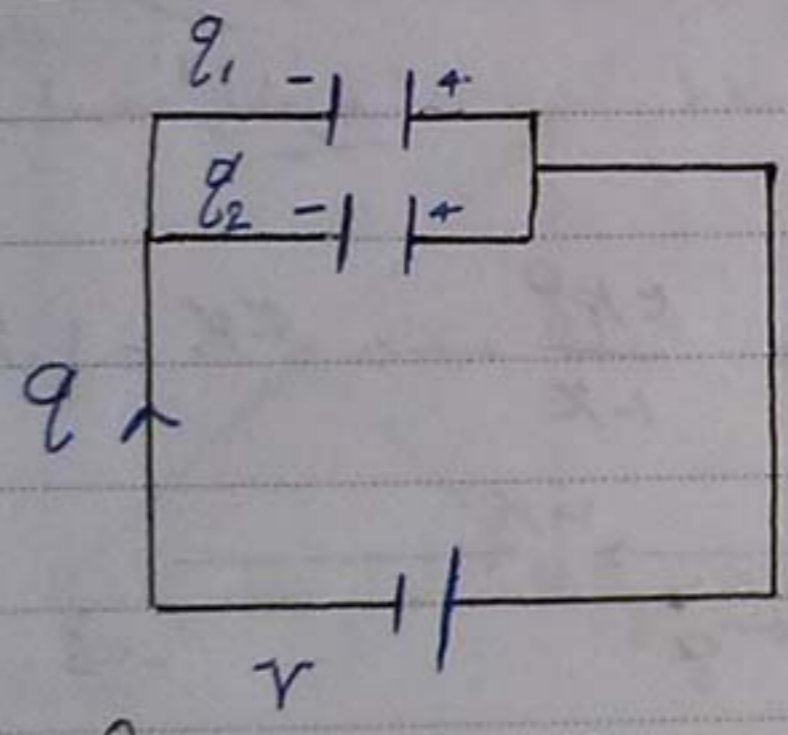 q₁ - +
q₂ - +
q
V